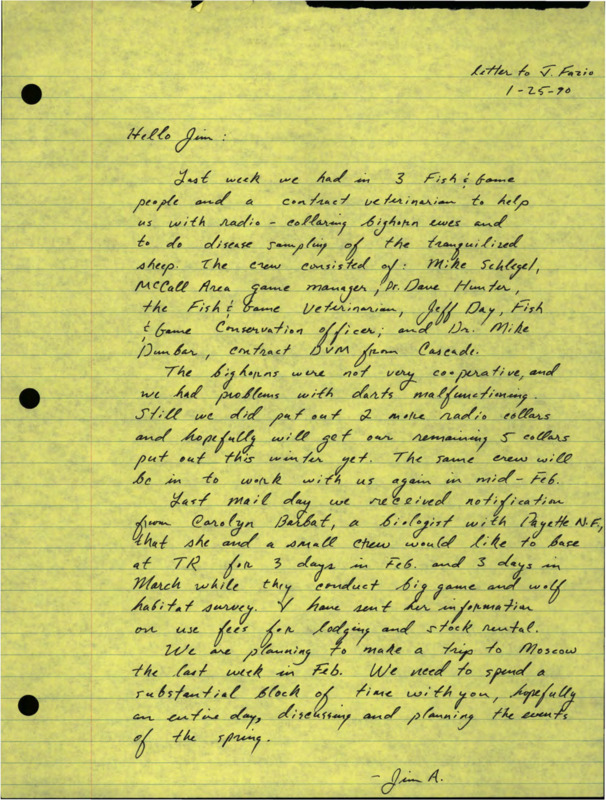 letter to J. Fazio
1-25-90
Hello Jim:
Last week we had in 3 Fish & Game
people and a contract veterinarian to help
us with radio-collaring bighorn ewes and
to do disease sampling of the tranquilized
sheep. The crew consisted of: Mike Schlegel,
McCall Area game manager, Dr. Dave Hunter,
the Fish & Game Veterinarian, Jeff Day, Fish
& Game Conservation officer; and Dr. Mike
Dunbar, contract DVM from Cascade.
The bighorns were not very cooperative, and
we had problems with darts malfunctioning.
Still we did put out 2 more radio collars
and hopefully will get our remaining 5 collars
put out this winter yet. The same crew will
be in to work with us again in mid-Feb.
Last mail day we received notification
from Carolyn Barbat, a biologist with Payette N.F.,
that she and a small crew would like to base
at TR for 3 days in Feb. and 3 days in
March while they conduct big game and wolf
habitat survey. I have sent her information
on use fees for lodging and stock rental.
We are planning to make a trip to Moscow
the last week in Feb. We need to spend a
substantial block of time with you, hopefully
an entire day, discussing and planning the events
of the spring.
- Jim A.